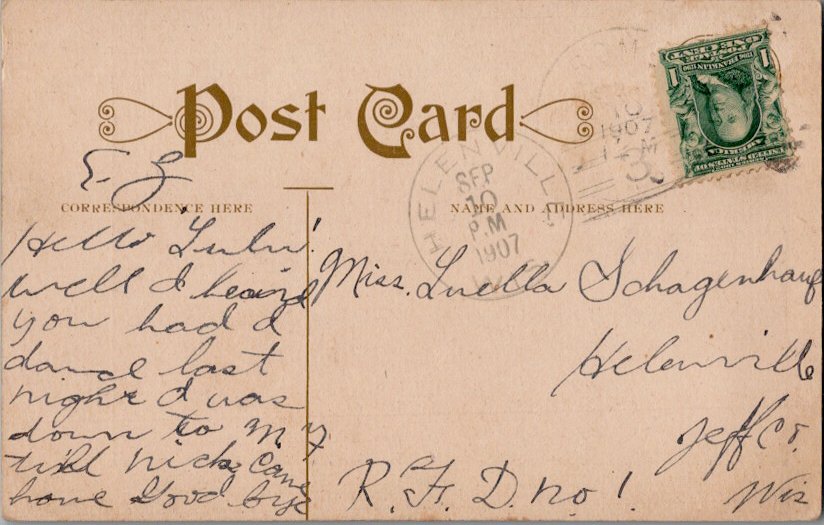 Post Card
E. Z
CORRESPONDENCE HERE
Hello Lulu!
well I heard
you had a
dance last
night I was
down to M y
till Nick came
home Good bye
NAME AND ADDRESS HERE
Miss. Luella Schagenhauf
Helenville
Jeff Co.
R. F. D. No 1.
Wis
HELENVILLE
SEP
10
P.M
1907
WIS
10
1907
M
UNITED STATES OF AMERICA
1 FRANKLIN 1
POSTAGE
ONE CENT